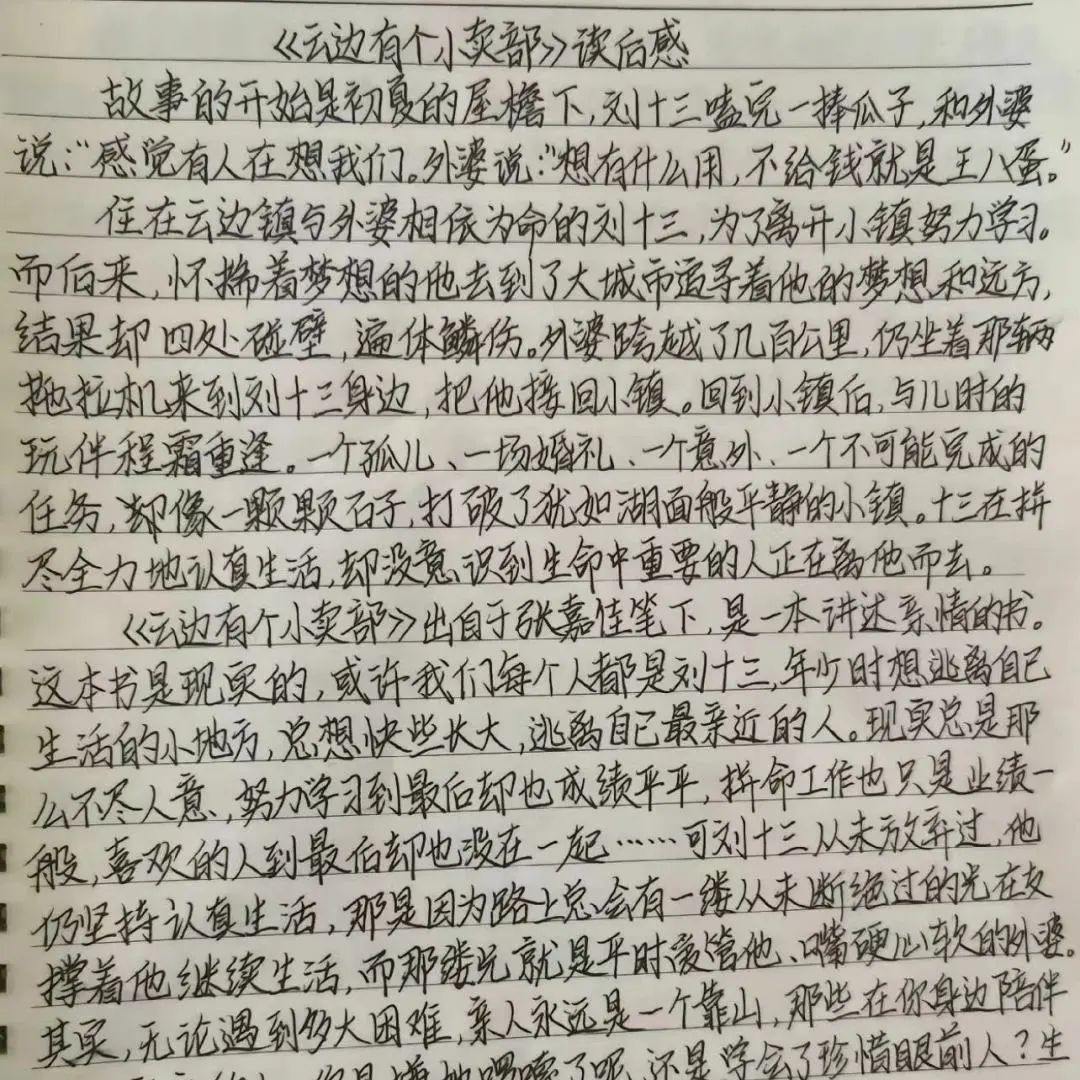 《云边有个小卖部》读后感
故事的开始是初夏的屋檐下,刘十三嗑完一捧瓜子,和外婆
说:“感觉有人在想我们。外婆说:“想有什么用,不给钱就是王八蛋。”
住在云边镇与外婆相依为命的刘十三,为了离开小镇努力学习。
而后来,怀揣着梦想的他去到了大城市追寻着他的梦想和远方,
结果却四处碰壁,遍体鳞伤。外婆跨越了几百公里,仍坐着那辆
拖拉机来到刘十三身边,把他接回小镇。回到小镇后,与儿时的
玩伴程霜重逢。一个孤儿、一场婚礼、一个意外、一个不可能完成的
任务,却像一颗颗石子,打破了犹如湖面般平静的小镇。十三在拼
尽全力地认真生活,却没意识到生命中重要的人正在离他而去。
《云边有个小卖部》出自于张嘉佳笔下,是一本讲述亲情的书。
这本书是现实的,或许我们每个人都是刘十三,年少时想逃离自己
生活的小地方,总想快些长大,逃离自己最亲近的人。现实总是那
么不尽人意,努力学习到最后却也成绩平平,拼命工作也只是业绩一
般,喜欢的人到最后却也没在一起……可刘十三从未放弃过,他
仍坚持认真生活,那是因为路上总会有一缕从未断绝过的光在支
撑着他继续生活,而那缕光就是平时爱管他、嘴硬心软的外婆。
其实,无论遇到多大困难,亲人永远是一个靠山,那些在你身边陪伴
你是嫌她啰嗦了呢,还是学会了珍惜眼前人?生